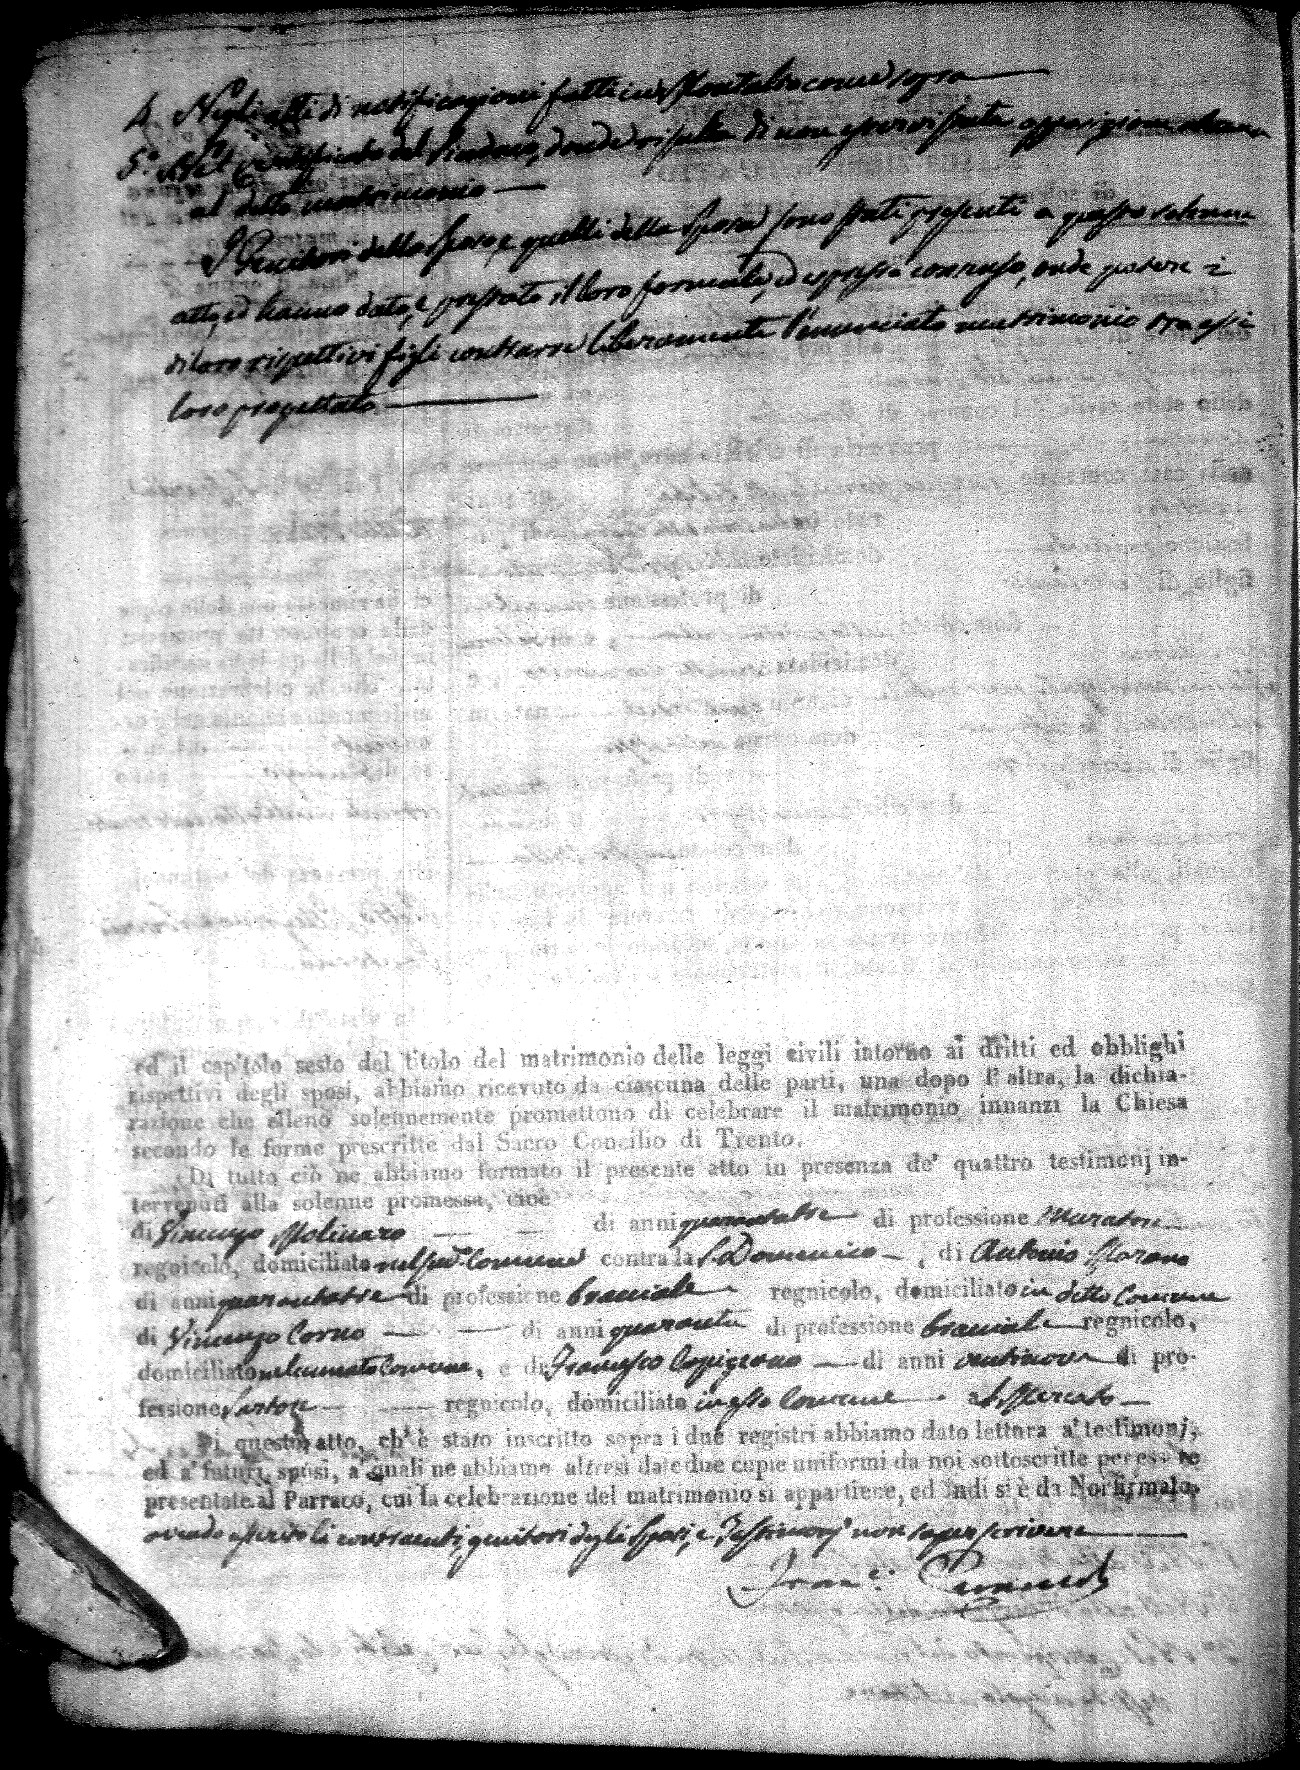 4. Negli atti di notificazioni fatti in Montalto come sopra
5.° Nel Certificato del Sindaco, donde risulta di non esservi fatta opposizione alcuna
al detto matrimonio
I Genitori dello Sposo, e quelli della Sposa sono stati presenti a questo solenne
atto, ed hanno dato, e prestato il loro formale, ed espresso consenso, onde potere i
di loro rispettivi figli contrarre liberamente l'enunciato matrimonio tra essi
loro progettato
ed il capitolo sesto del titolo del matrimonio delle leggi civili intorno ai dritti ed obblighi
rispettivi degli sposi, abbiamo ricevuto da ciascuna delle parti, una dopo l'altra, la dichia-
razione che elleno solennemente promettono di celebrare il matrimonio innanzi la Chiesa
secondo le forme prescritte dal Sacro Concilio di Trento.
Di tutto ciò ne abbiamo formato il presente atto in presenza de' quattro testimonj in-
tervenuti alla solenne promessa, cioè
di Vincenzo Molinaro di anni quarantatre di professione Muratore
regnicolo, domiciliato nel sud.° Comune contrada S. Domenico, di Antonio Morano
di anni di professione bracciale regnicolo, domiciliato in detto Comune
di Vincenzo Corno di anni quaranta di professione bracciale regnicolo,
domiciliato Comune, e di Francesco di anni ventinove di pro-
fessione Sartore regnicolo, domiciliato in esso Comune al Mercato
Di questo atto, ch' è stato inscritto sopra i due registri abbiamo dato lettura a' testimonj,
ed a' futuri sposi, a' quali ne abbiamo altresì date due copie uniformi da noi sottoscritte per essere
presentate al Parroco, cui la celebrazione del matrimonio si appartiene, ed indi si è da Noi firmato,
avendo asserito li contraenti, genitori degli Sposi, e Testimonj non saper scrivere